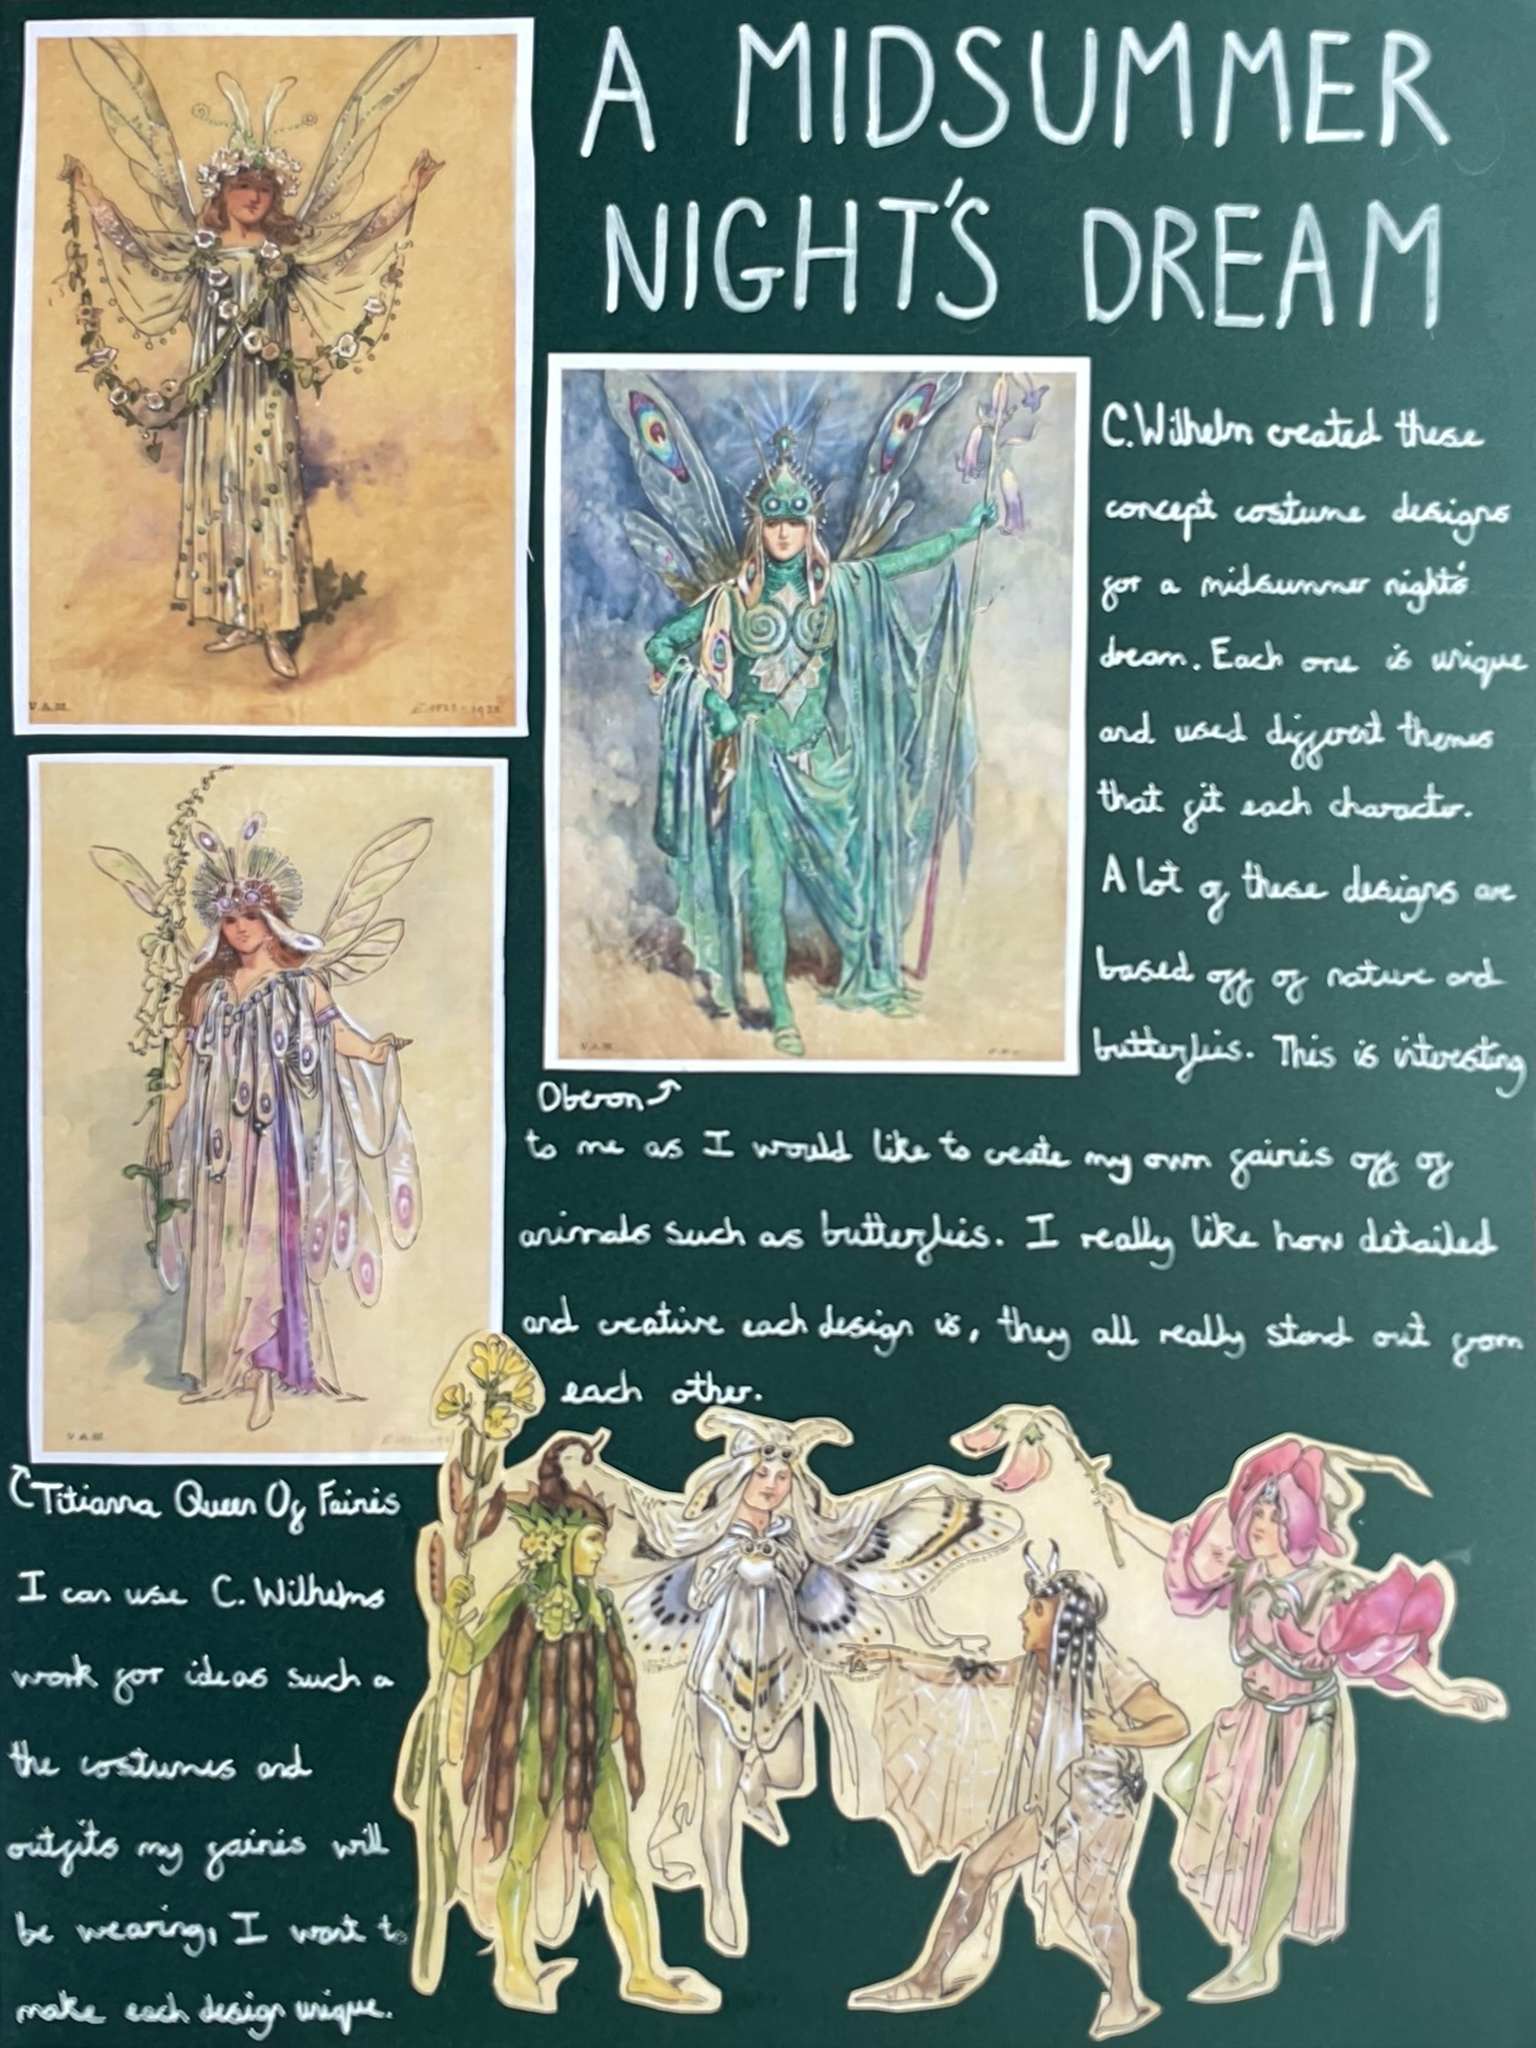 A MIDSUMMER
NIGHT'S DREAM
C.Wilhelm created these
concept costume designs
for a midsummer nights'
dream. Each one is unique
and used different themes
that fit each character.
A lot of these designs are
based off of nature and
butterflies. This is interesting
to me as I would like to create my own fairies off of
animals such as butterflies. I really like how detailed
and creative each design is, they all really stand out from
each other.
Oberon
V.A.M.
V.A.M.
V.A.M.
Titianna Queen Of Fairies
I can use C. Wilhelms
work for ideas such a
the costumes and
outfits my fairies will
be wearing, I want to
make each design unique.